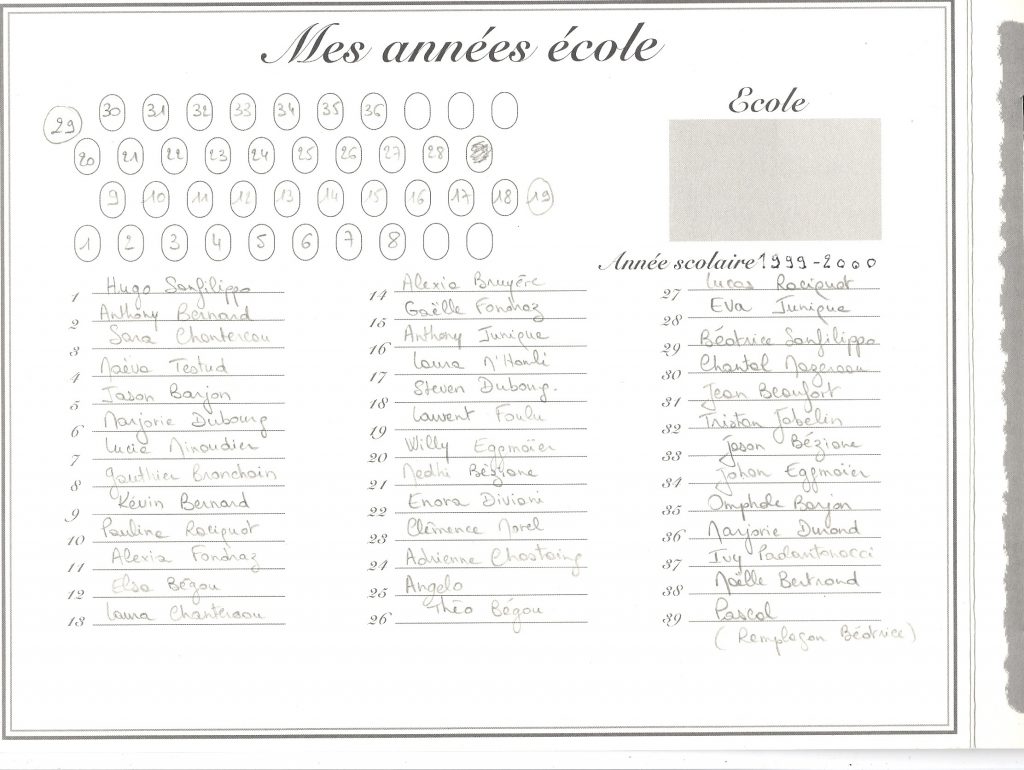 Mes années école
30 31 32 33 34 35 36
Ecole
29
20 21 22 23 24 25 26 27 28
9 10 11 12 13 14 15 16 17 18 19
1 2 3 4 5 6 7 8
Année scolaire 1999-2000
1 Hugo Sanfilippo
2 Anthony Bernard
3 Sara Chantereau
4 Maëva Testud
5 Jason Barjon
6 Marjorie Dubourg
7 Lucie Miroudier
8 Gauthier Branchain
9 Kévin Bernard
10 Pauline Raciquot
11 Alexia Fondraz
12 Elsa Bégou
13 Laura Chantereau
14 Alexia Bruyère
15 Gaëlle Fondraz
16 Anthony Junique
17 Laura M'Hamli
18 Steven Dubourg.
19 Laurent Foulu
20 Willy Eggmaïer
21 Medhi Béziane
22 Enora Diviani
23 Clémence Morel
24 Adrienne Chastaing
25 Angelo
26 Théo Bégou
27 Lucas Raciquot
28 Eva Junique
29 Béatrice Sanfilippo
30 Chantal
31 Jean Beaufort
32 Tristan Jobelin
33 Jason Béziane
34 Johan Eggmaïer
35 Omphale Barjon
36 Marjorie Durand
37 Ivy Padlantonacci
38 Maëlle Bertrand
39 Pascal
(Remplaçan Béatrice)